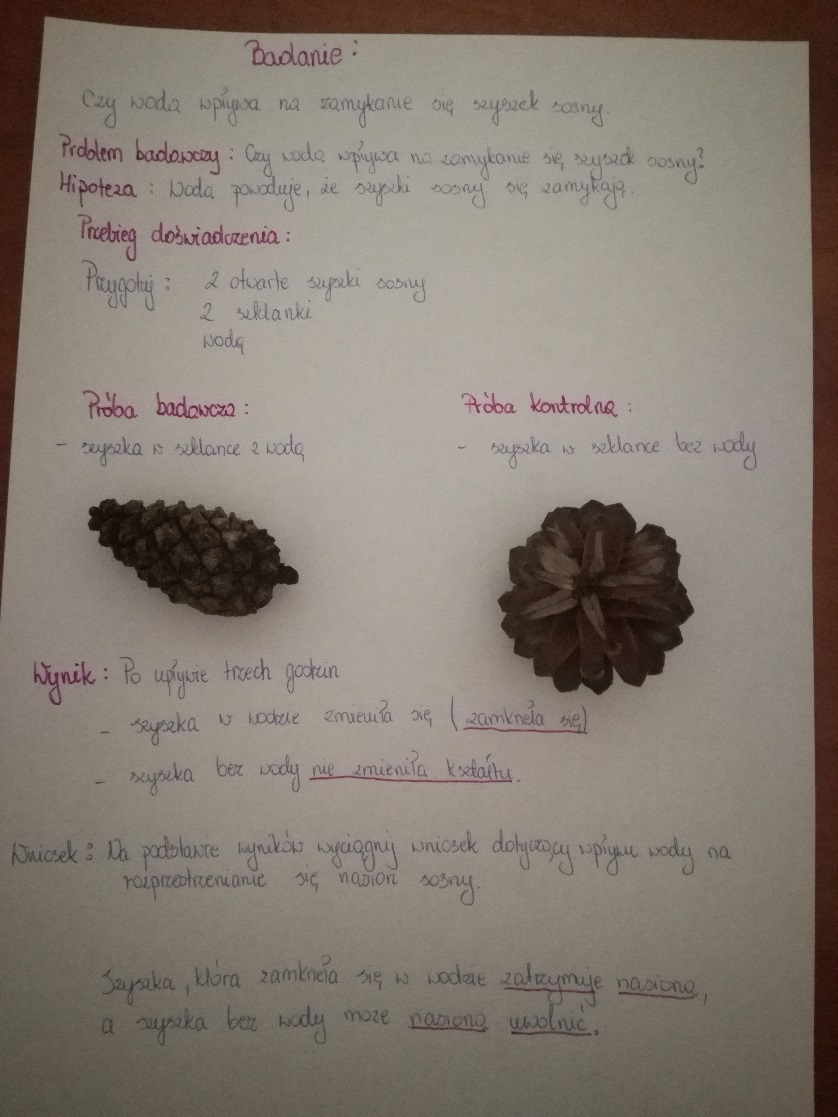 Badanie:
Czy woda wpływa na zamykanie się szyszek sosny.
Problem badawczy: Czy woda wpływa na zamykanie się szyszek sosny?
Hipoteza: Woda powoduje, że szyszki sosny się zamykają.
Przebieg doświadczenia:
Przygotuj: 2 otwarte szyszki sosny
2 szklanki
wodę
Próba badawcza:
- szyszka w szklance z wodą
Próba kontrolna:
- szyszka w szklance bez wody
Wynik: Po upływie trzech godzin
- szyszka w wodzie zmieniła się (zamknęła się)
- szyszka bez wody nie zmieniła kształtu.
Wniosek: Na podstawie wyników wyciągnij wniosek dotyczący wpływu wody na
rozprzestrzenianie się nasion sosny.
Szyszka, która zamknęła się w wodzie zatrzymuje nasiona,
a szyszka bez wody może nasiona uwolnić.